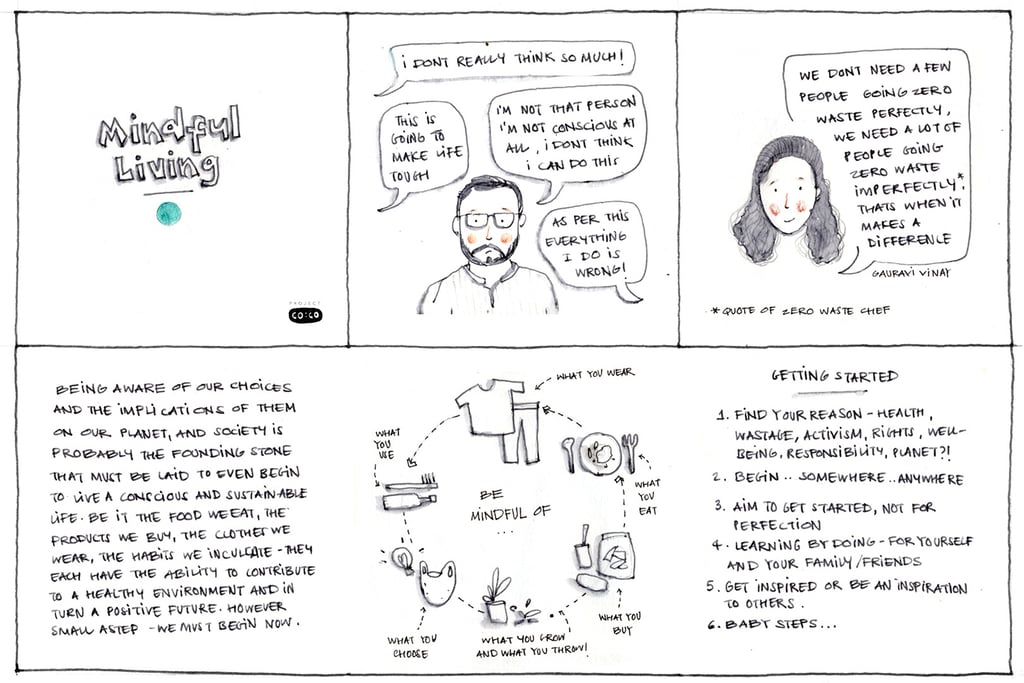 Mindful
Living
PROJECT
CO:CO
I DONT REALLY THINK SO MUCH!
THIS IS
GOING TO
MAKE LIFE
TOUGH
I'M NOT THAT PERSON
I'M NOT CONSCIOUS AT
ALL, I DONT THINK
I CAN DO THIS
AS PER THIS
EVERYTHING
I DO IS
WRONG!
WE DONT NEED A FEW
PEOPLE GOING ZERO
WASTE PERFECTLY,
WE NEED A LOT OF
PEOPLE GOING
ZERO WASTE
IMPERFECTLY*.
THATS WHEN IT
MAKES A
DIFFERENCE
GAURAVI VINAY
*QUOTE OF ZERO WASTE CHEF
BEING AWARE OF OUR CHOICES
AND THE IMPLICATIONS OF THEM
ON OUR PLANET, AND SOCIETY IS
PROBABLY THE FOUNDING STONE
THAT MUST BE LAID TO EVEN BEGIN
TO LIVE A CONSCIOUS AND SUSTAINABLE
LIFE. BE IT THE FOOD WE EAT, THE
PRODUCTS WE BUY, THE CLOTHES WE
WEAR, THE HABITS WE INCULCATE - THEY
EACH HAVE THE ABILITY TO CONTRIBUTE
TO A HEALTHY ENVIRONMENT AND IN
TURN A POSITIVE FUTURE. HOWEVER
SMALL A STEP - WE MUST BEGIN NOW.
WHAT YOU WEAR
WHAT
YOU
USE
BE
MINDFUL OF
...
WHAT
YOU
EAT
WHAT YOU
CHOOSE
WHAT YOU GROW
AND WHAT YOU THROW!
WHAT YOU
BUY
GETTING STARTED
1. FIND YOUR REASON - HEALTH,
WASTAGE, ACTIVISM, RIGHTS, WELL-
BEING, RESPONSIBILITY, PLANET?!
2. BEGIN.. SOMEWHERE.. ANYWHERE
3. AIM TO GET STARTED, NOT FOR
PERFECTION
4. LEARNING BY DOING - FOR YOURSELF
AND YOUR FAMILY/FRIENDS
5. GET INSPIRED OR BE AN INSPIRATION
TO OTHERS.
6. BABY STEPS...